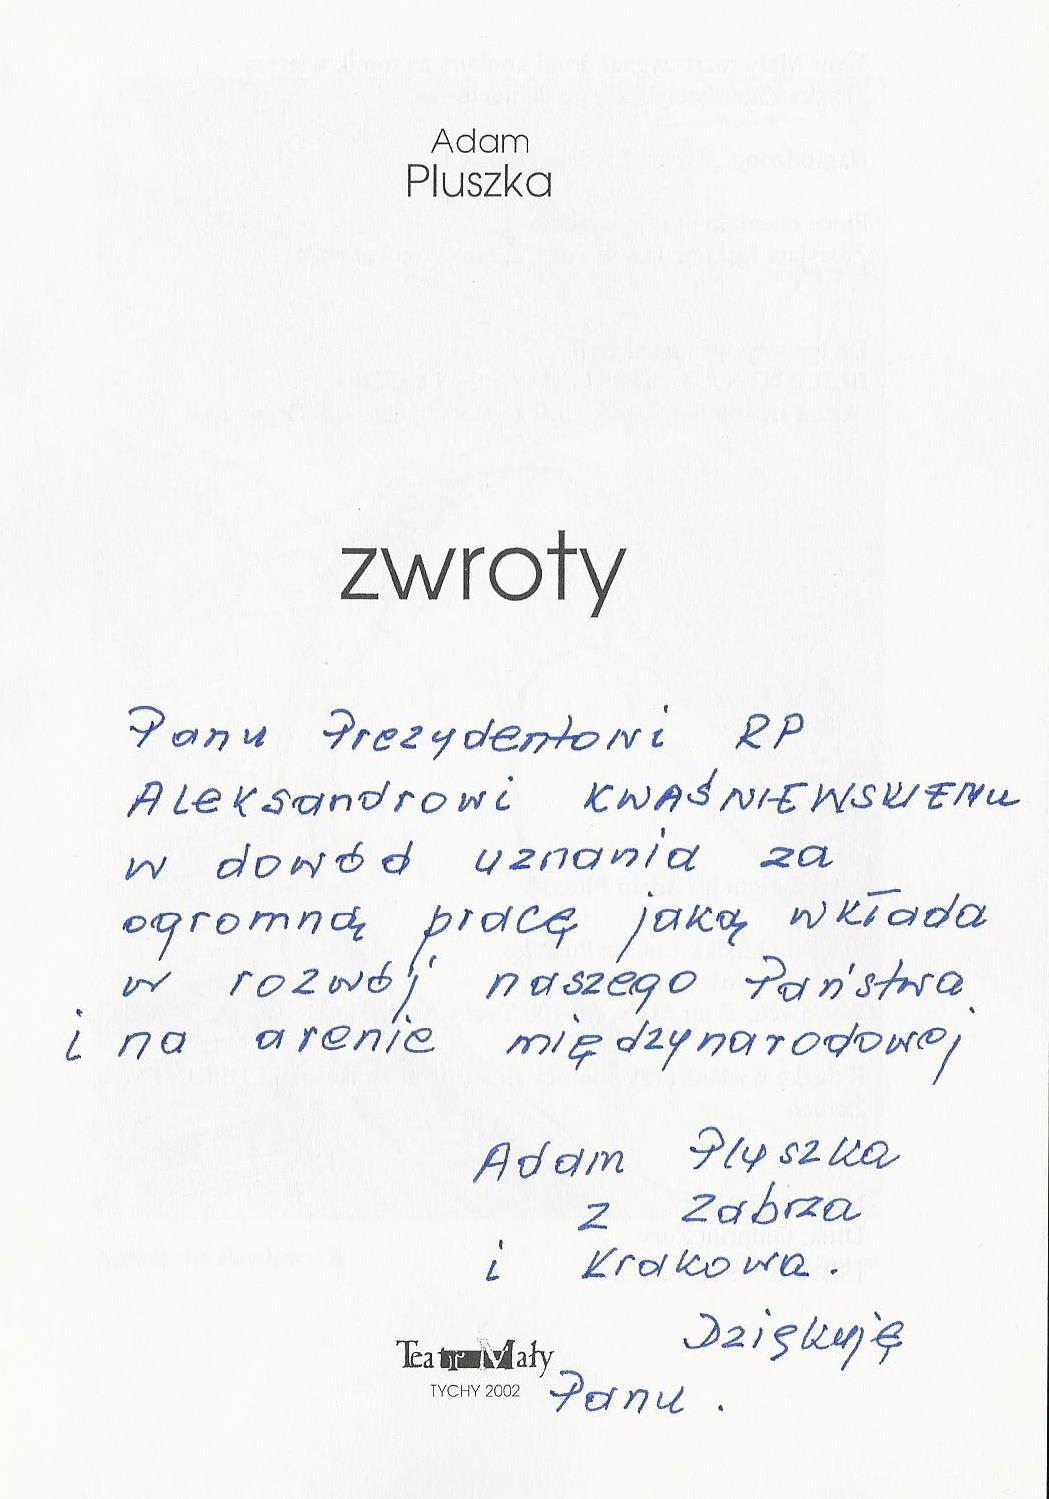 Adam
Pluszka
zwroty
Panu Prezydentowi RP
Aleksandrowi KWAŚNIEWSKIEMU
w dowód uznania za
ogromną pracę jaką wkłada
w rozwój naszego Państwa
i na arenie międzynarodowej
Adam Pluszka
z Zabrza
i Krakowa.
Dziękuję
Panu.
Teatr Mały
TYCHY 2002